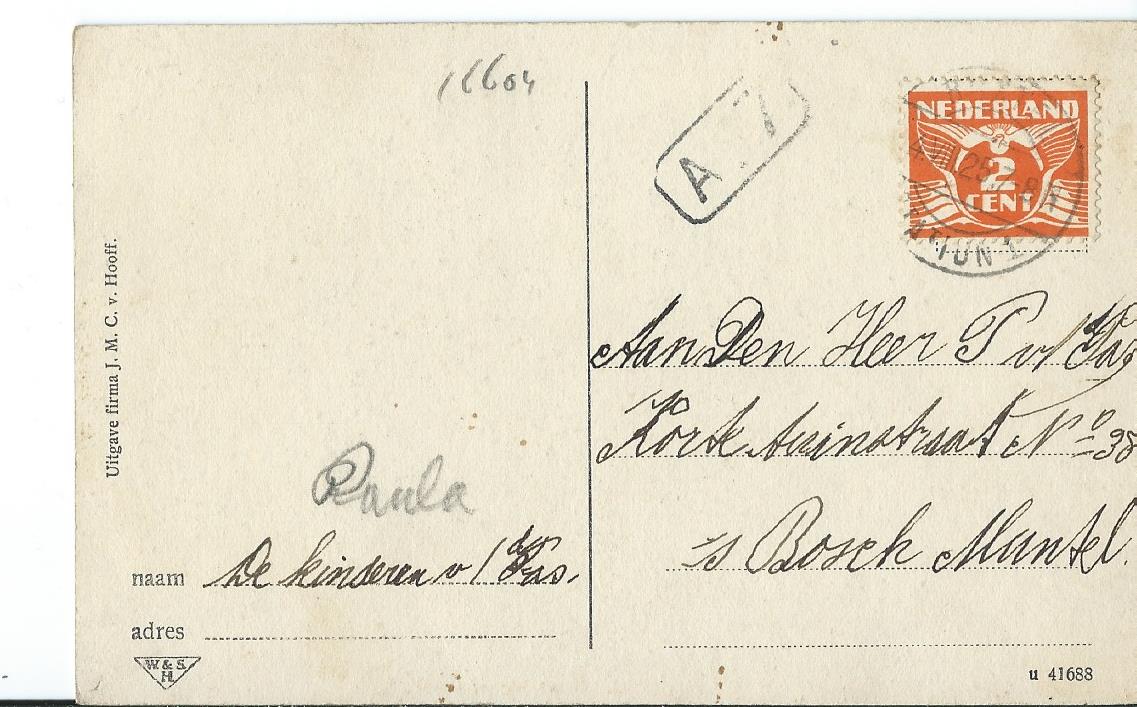 Uitgave firma J. M. C. v. Hooff.
Paula
naam De kinderen v/d Pas.
adres
W. & S.
H.
A 7
NEDERLAND
2
CENT
Aan Den Heer P v/d Pas
Korte Tuinstraat No 38
's Bosch Muntel.
u 41688